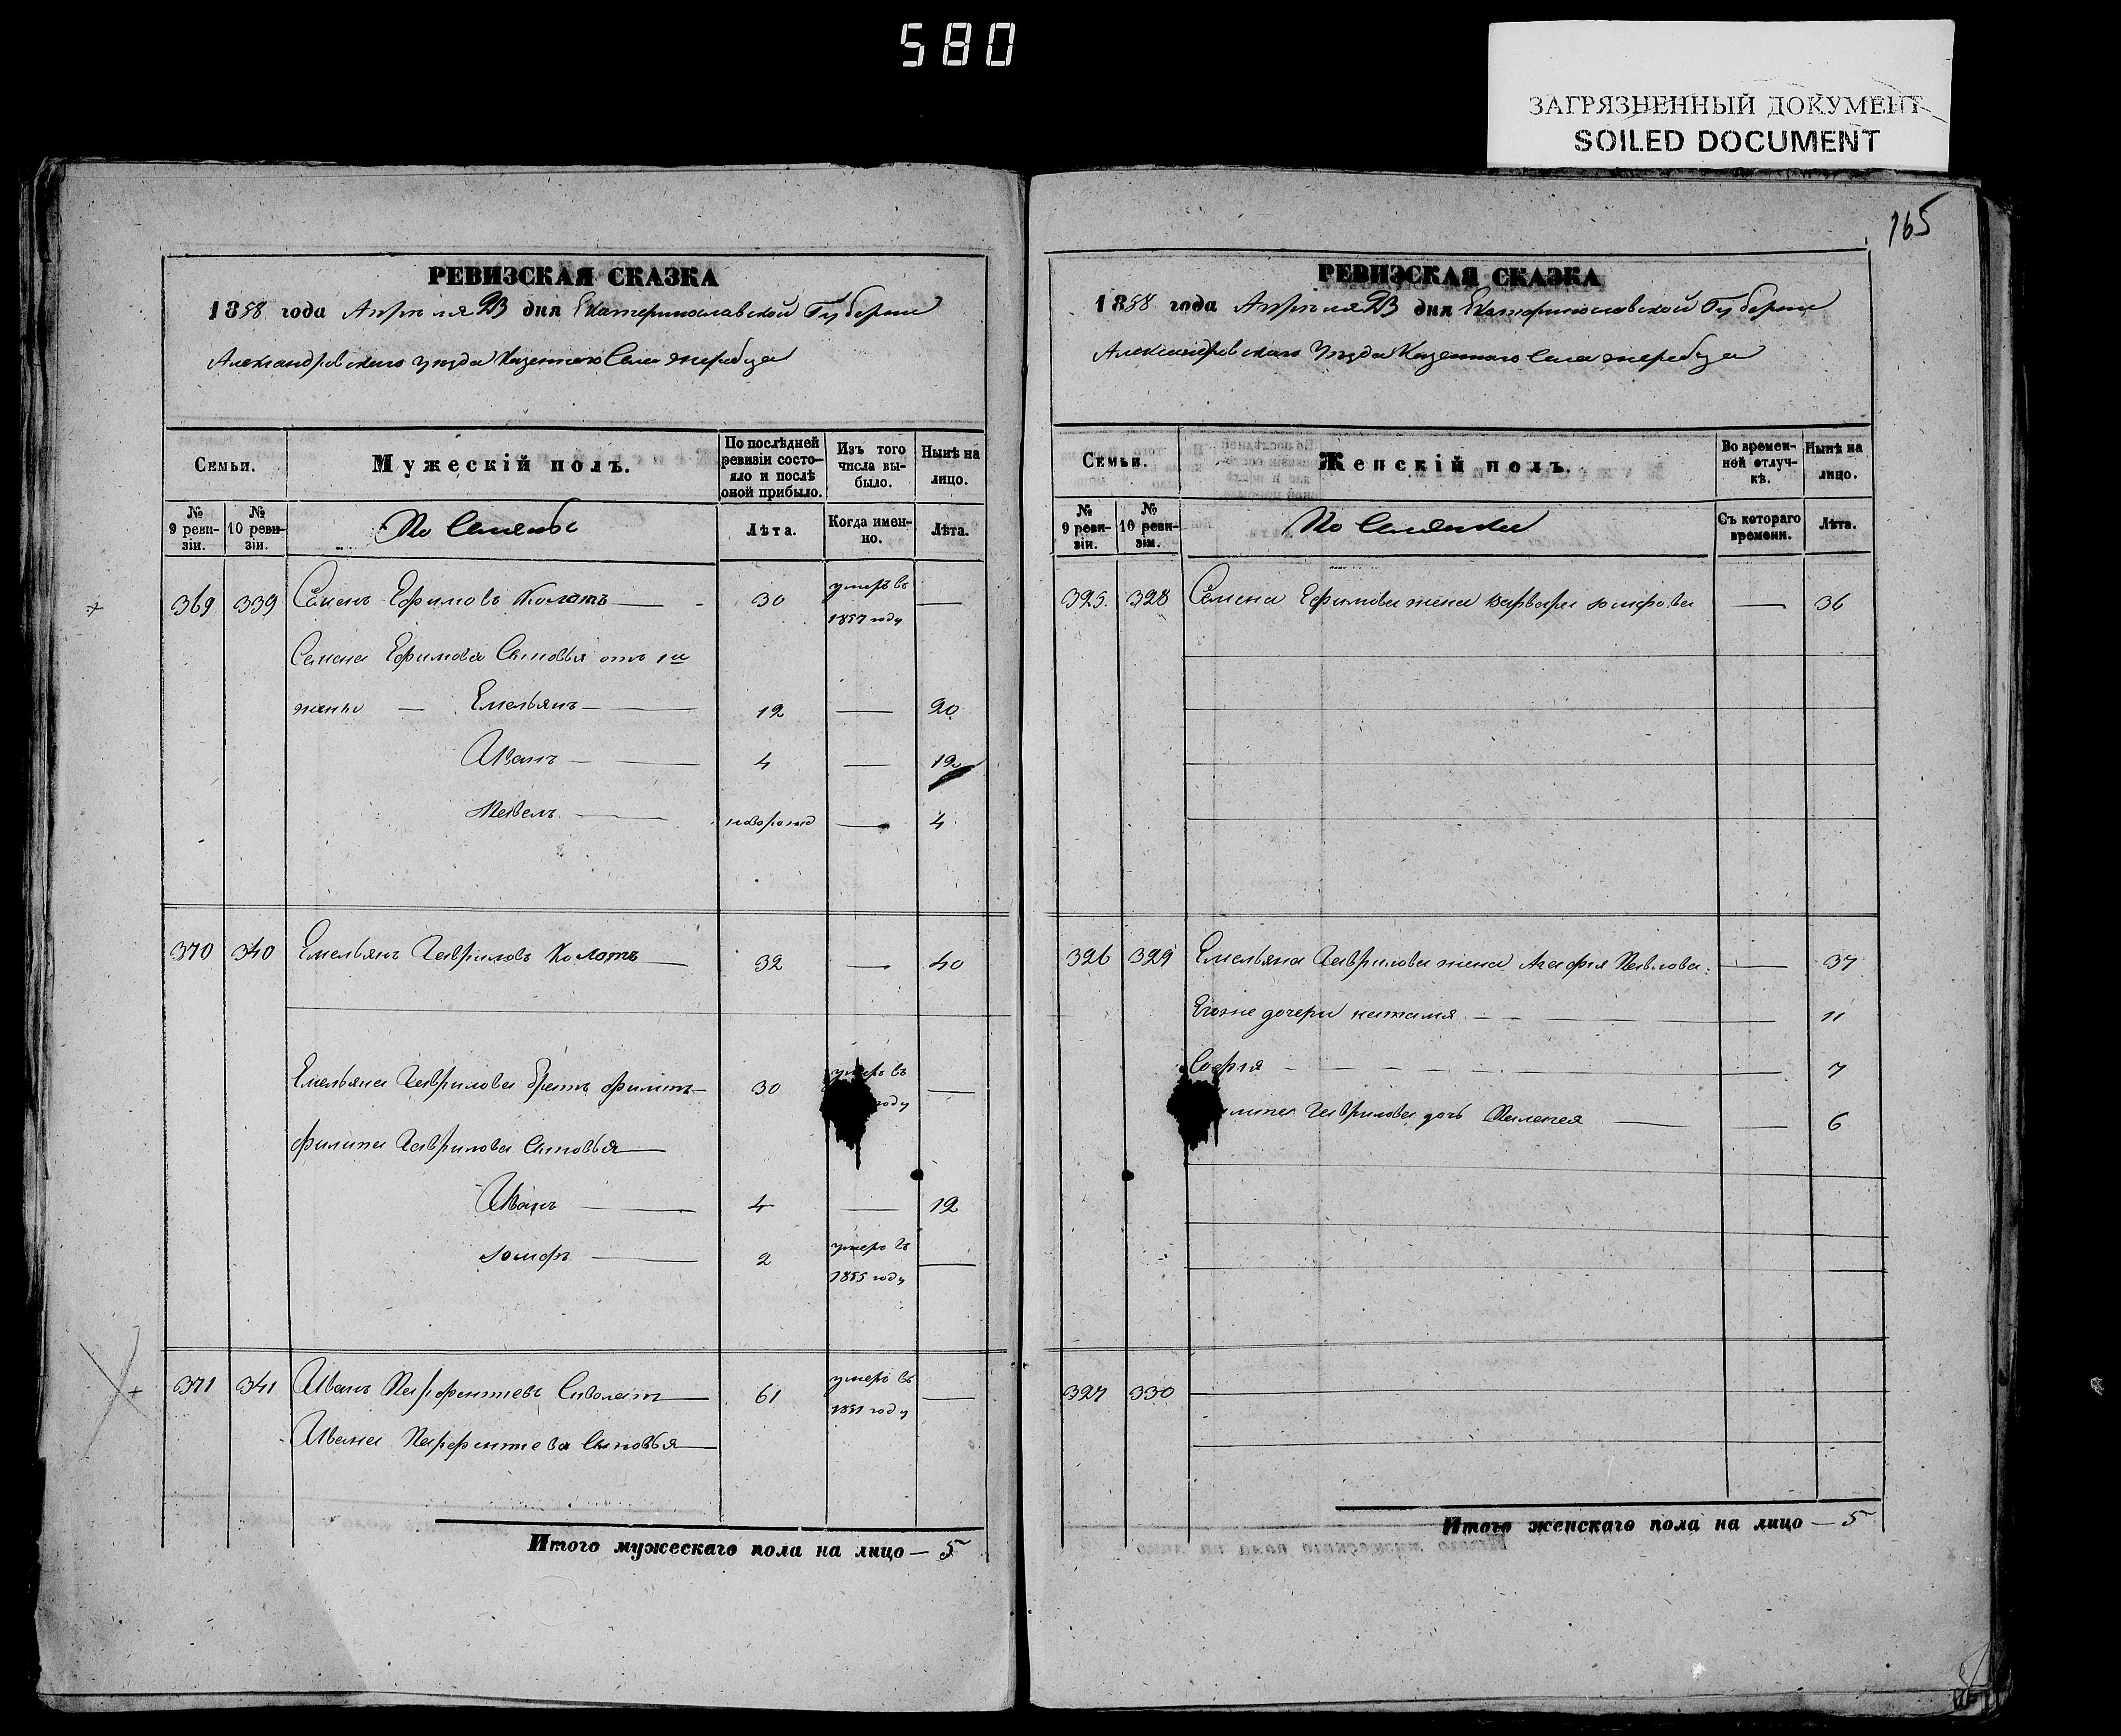 580
ЗАГРЯЗНЕННЫЙ ДОКУМЕНТ
SOILED DOCUMENT
165
РЕВИЗСКАЯ СКАЗКА
1858 года Апрѣля 23 дня Екатеринославской Губернии
Александровского уѣзда Казенного Села жеребца
Семьи.
Мужескій полъ.
По послѣдней ревизіи состояло и послѣ оной прибыло.
Изъ того числа выбыло.
Нынѣ на лицо.
№ 9 ревизіи.
№ 10 ревизіи.
Лѣта.
Когда именно.
Лѣта.
369 339 Семенъ Ефимовъ 30 умеръ въ 1857 году —
Семена Ефимова Сыновья отъ 1й
жены — Емельянъ — 12 — 20
Иванъ — 4 — 12
Павелъ — новорожд — 4
370 340 Емельянъ Гавриловъ 32 — 40
Емельяна Гаврилова братъ филипъ 30 умеръ въ году —
филипа Гаврилова Сыновья
Иванъ — 4 — 12
2 умеръ въ 1855 году —
371 341 Иванъ Парфентиевъ 61 умеръ въ 1851 году —
Ивана Парфентиева Сыновья
Итого мужескаго пола на лицо — 5
РЕВИЗСКАЯ СКАЗКА
1858 года Апрѣля 23 дня Екатеринославской Губернии
Александровского уѣзда Казенного Села жеребца
Семьи.
Женскій полъ.
Во временной отлучкѣ.
Нынѣ на лицо.
№ 9 ревизіи.
№ 10 ревизіи.
Съ котораго времени.
Лѣта.
325. 328 Семена Ефимова жена варвара — 36
326 329 Емельяна Гаврилова жена Агафия Павлова — 37
Егоже дочери наталия — 11
София — 7
Гаврилова дочь — 6
327 330
Итого женскаго пола на лицо — 5